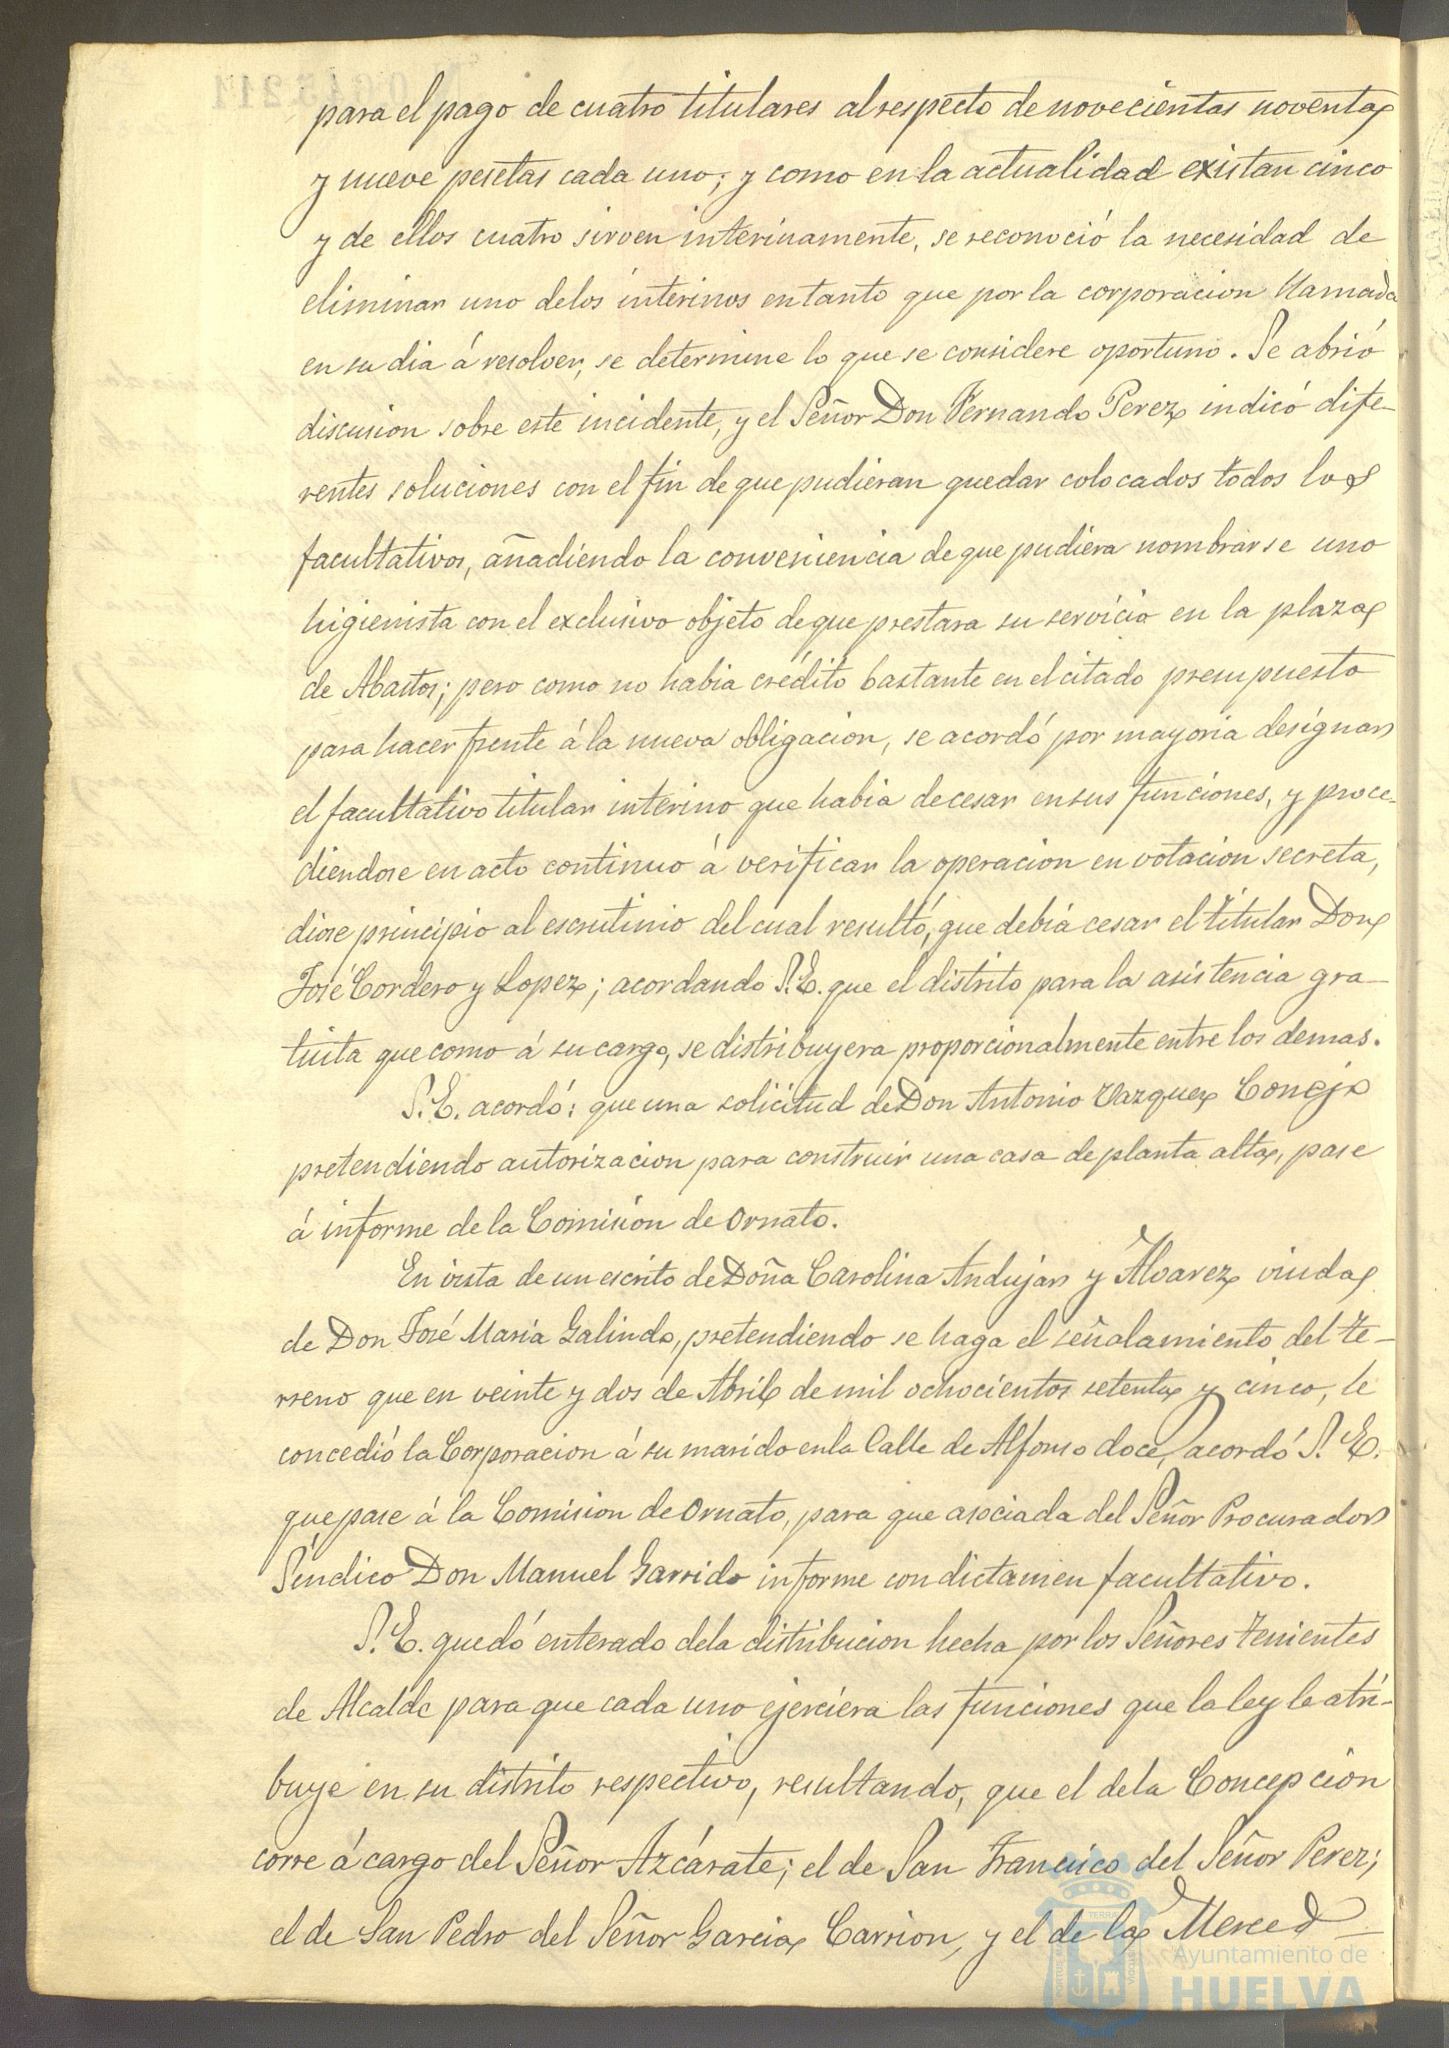 para el pago de cuatro titulares al respecto de novecientas noventa
y nueve pesetas cada uno; y como en la actualidad existan cinco
y de ellos cuatro sirven interinamente, se reconoció la necesidad de
eliminar uno delos interinos en tanto que por la corporacion llamada
en su dia á resolver, se determine lo que se considere oportuno. Se abrió
discusion sobre este incidente, y el Señor Don Fernando Perez indicó dife-
rentes soluciones con el fin de que pudieran quedar colocados todos los
facultativos, añadiendo la conveniencia de que pudiera nombrarse uno
higienista con el exclusivo objeto de que prestara su servicio en la plaza
de Abastos; pero como no habia crédito bastante en el citado presupuesto
para hacer frente á la nueva obligacion, se acordó por mayoria designar
el facultativo titular interino que habia de cesar en sus funciones, y proce-
diendose en acto continuo á verificar la operacion en votacion secreta,
diose principio al escrutinio del cual resultó, que debia cesar el titular Don
José Cordero y Lopez; acordando S.E. que el distrito para la asistencia gra-
tuita que como á su cargo, se distribuyera proporcionalmente entre los demas.
S.E. acordó: que una solicitud de Don Antonio Vazquez Conejo
pretendiendo autorizacion para construir una casa de planta alta, pase
á informe de la Comision de Ornato.
En vista de un escrito de Doña Carolina Andujar y Álvarez viuda
de Don José Maria Galindo, pretendiendo se haga el señalamiento del te-
rreno que en veinte y dos de Abril de mil ochocientos setenta y cinco, le
concedió la Corporacion á su marido en la Calle de Alfonso doce, acordó S.E.
que pase á la Comision de Ornato, para que asociada del Señor Procurador
Síndico Don Manuel Garrido informe con dictamen facultativo.
S.E. quedó enterado dela distribucion hecha por los Señores Tenientes
de Alcalde para que cada uno ejerciera las funciones que la ley le atri-
buye en su distrito respectivo, resultando, que el dela Concepcion
corre á cargo del Señor Azcárate; el de San Francisco del Señor Perez;
el de San Pedro del Señor Garcia Carrion, y el de la Merced
Ayuntamiento de
HUELVA